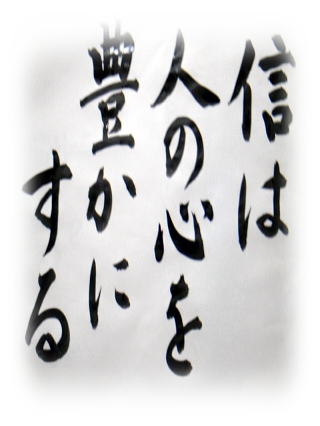 信は
人の心を
豊かに
する